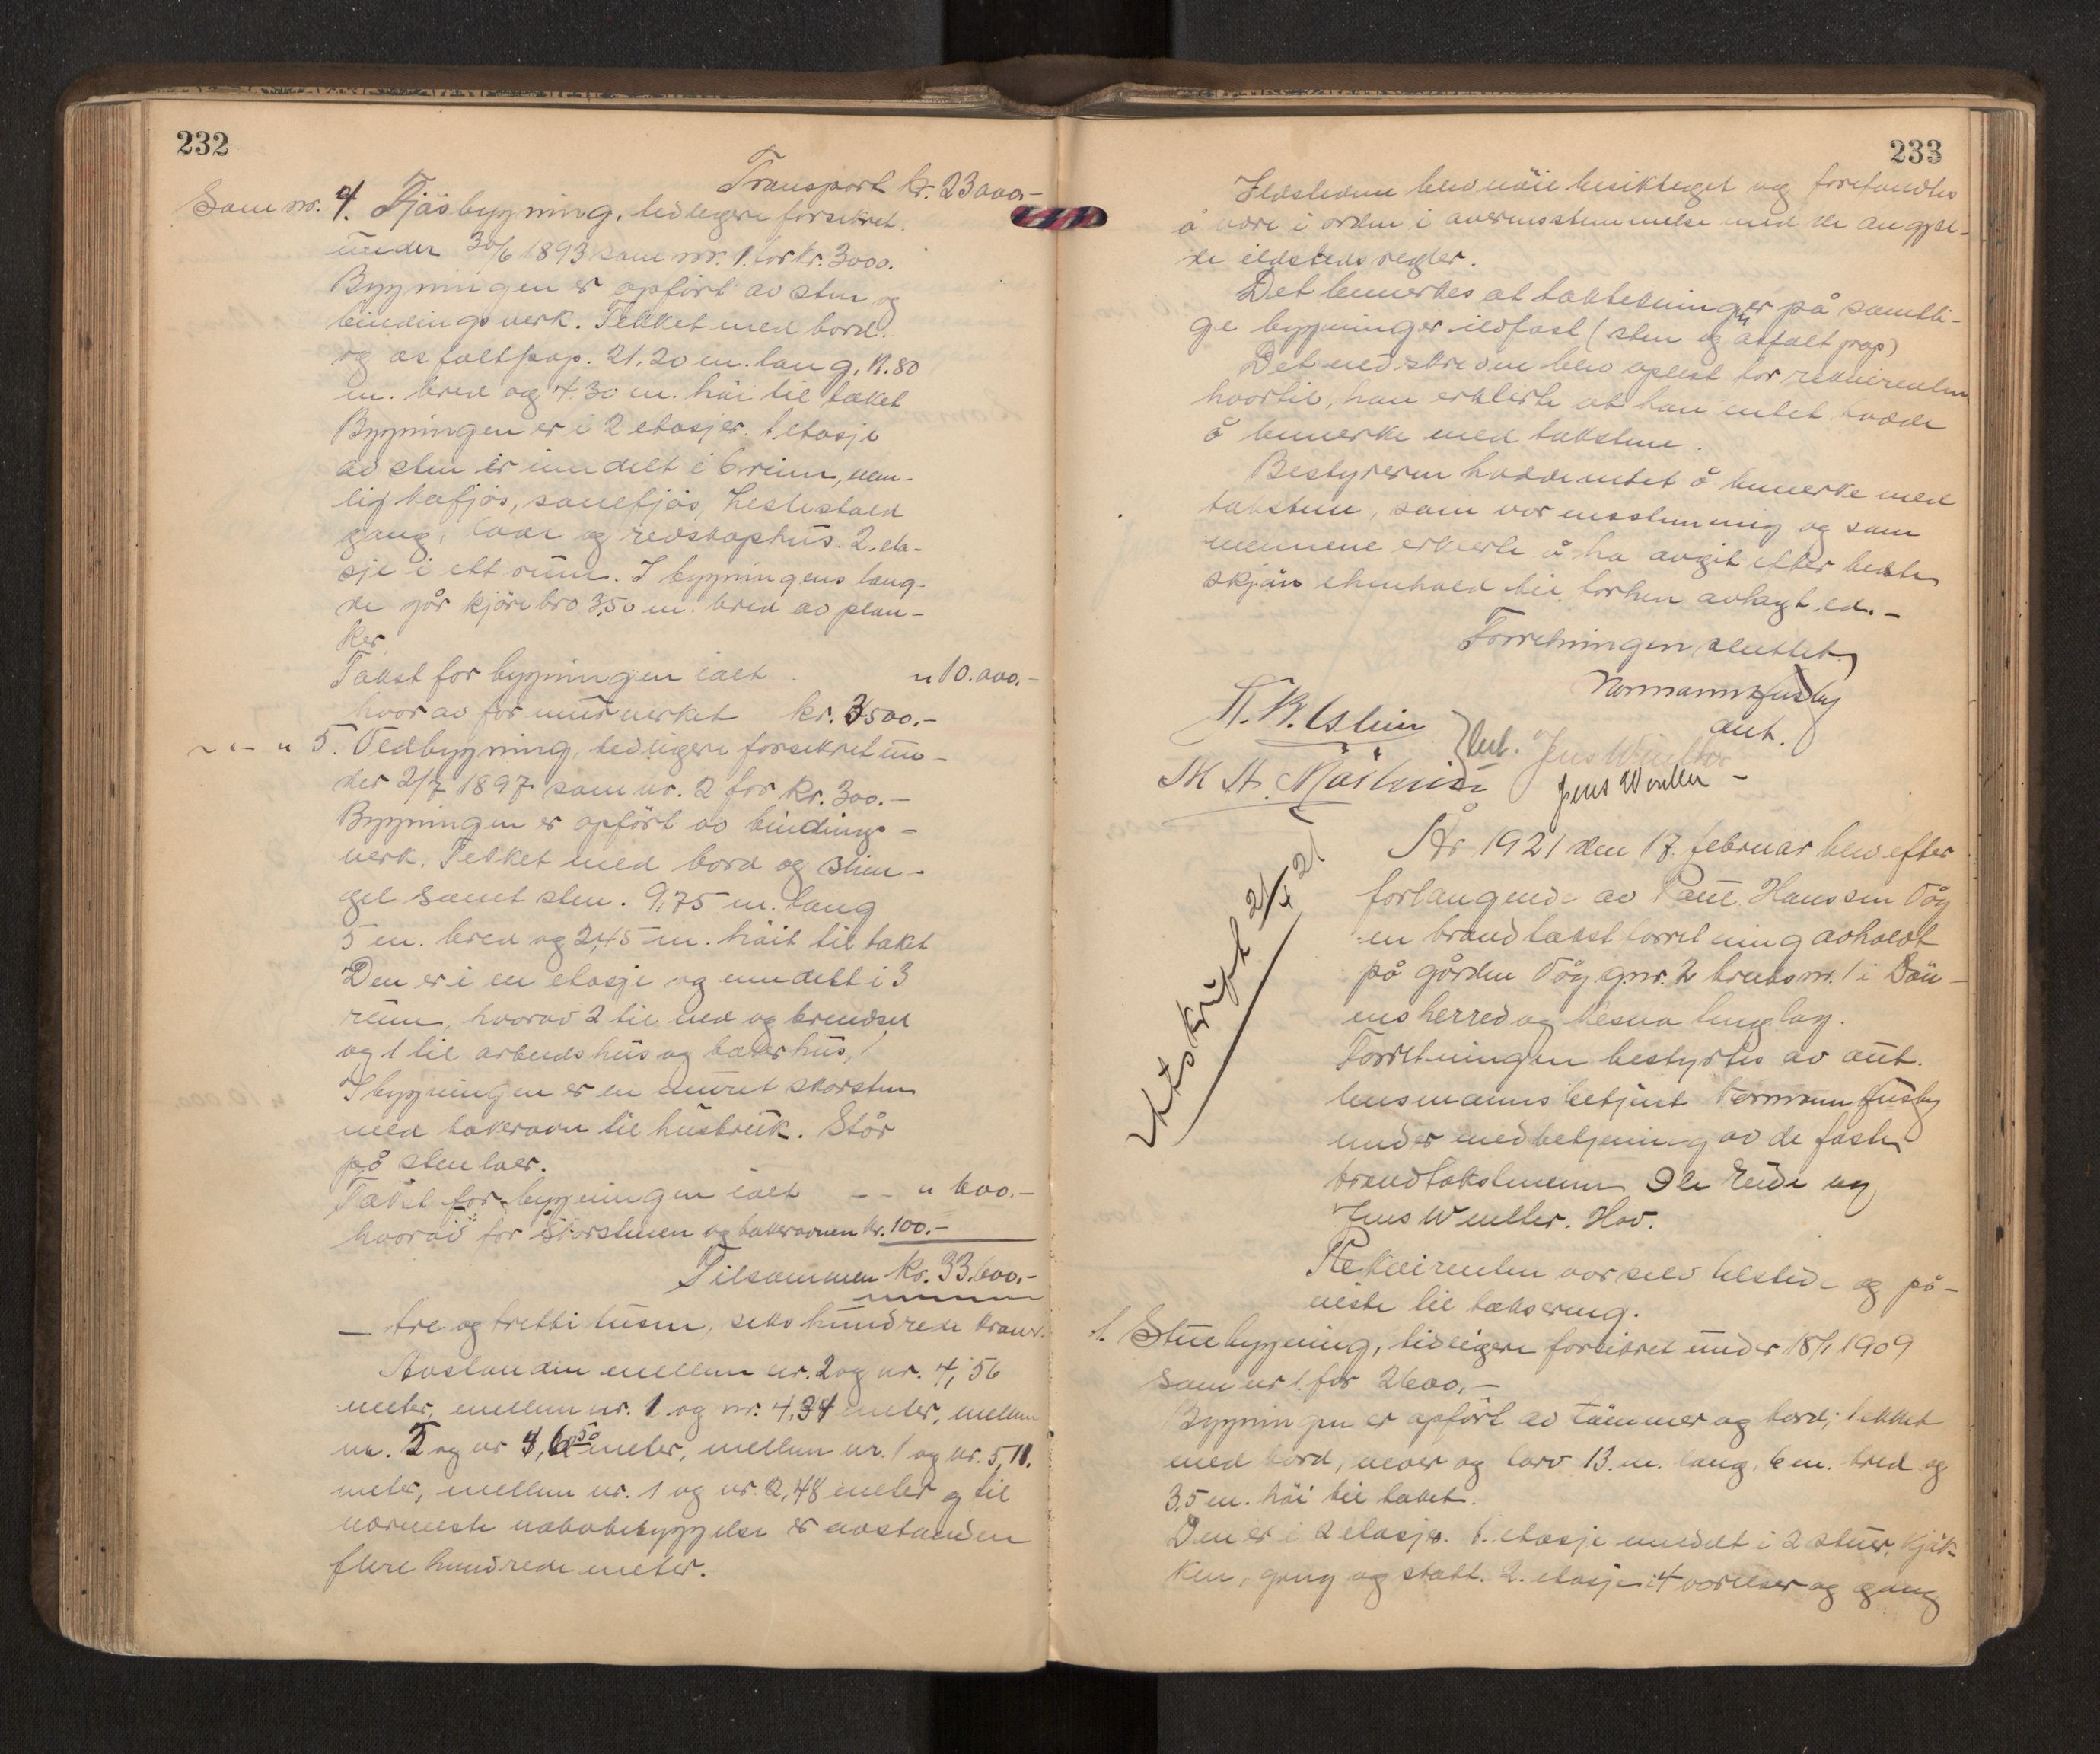 232
Transport kr. 23000.-
Som nr. 4. Fjøsbygning, tidligere forsikret.
under 30/6 1893 som nr. 1. for kr. 3000.
Bygningen er opført av sten og
bindingsverk. Tekket med bord.
og asfaltpap. 21.20 m. lang, 11.80
m. bred og 4.30 m. høi til taket
Bygningen er i 2 etasjer. 1 etasje
av sten er inndelt i 6 rum, nem-
lig kufjøs, sauefjøs, hestestald
gang, lade og redskaphus. 2. eta-
sje i ett rum. I bygningens leng-
de går kjørebro 3,50 m. bred av plan-
ker
Takst for bygningen ialt " 10.000.-
hvorav for murverket kr. 3500.-
~ " - " 5. Vedbygning, tidligere forsikret un-
der 2/7 1897 som nr. 2 for kr. 300.-
Bygningen er opført av bindings-
verk. Tekket med bord og shin-
gel samt sten. 9,75 m. lang
5 m. bred og 2,45 m. høit til taket
Den er i en etasje og inndelt i 3
rum, hvorav 2 til ved og brendsel
og 1 til arbeidshus og bakerhus,
I bygningen er en muret skorsten
med bakerovn til husbruk. Står
på stenlaer.
Takst for bygningen ialt - - " 600.-
hvorav for skorstenen og bakerovnen kr. 100.-
Tilsammen kr. 33.600.-
- tre og tretti tusen, seks hundrede kroner.
Avstanden mellem nr. 2 og nr. 4, 56
meter, mellem nr. 1 og nr. 4, 34 meter, mellem
nr. og nr meter, mellem nr. 1 og nr. 5, 11.
meter, mellem nr. 1 og nr. 2, 48 meter og til
nærmeste nabobebyggelse er avstanden
flere hundrede meter.
233
Ildstedene blev nøie besiktiget og forefandtes
å være i orden i overensstemmelse med de angjel-
de ildstedsregler.
Det bemerkes at taktekningen på samtli-
ge bygninger ildfast (sten og asfalt pap)
Det nedskrevne blev oplest for rekvirenten
hvortil, han erklærte at han intet hadde
å bemerke med taksten.
Bestyreren hadde intet å bemerke med
taksten, som var enstemmig og som
mennene erklærte å ha avgit efter beste
skjøn i henhold til forhen avlagt ed.-
Forretningen sluttet
Normann Husby
aut.
Jens Wentler
Jens Wentler -
Utskrift 21/4 21
År 1921 den 17. februar blev efter
forlangende av Paul Hanssen Våg
en brandtakstforretning avholdt
på gården Våg gnr. 2 bruks nr. 1 i Døn-
nes herred og Nesna tinglag.
Forretningen bestyrtes av aut.
lensmannsbetjent Normann Husby
under medbetjening av de faste
brandtakstmenn Ole Eide og
Jens Wentler. Hov.
Rekvirenten var selv tilstede og på-
viste til taksering.
1. Stuebygning, tidligere forsikret under 18/1 1909
som nr 1. for 2600.-
Bygningen er opført av tømmer og bord, tekket
med bord, never og torv 13. m. lang, 6 m. bred og
3,5 m. høi til taket.
Den er i 2 etasjer. 1. etasje inndelt i 2 stuer, kjøk-
ken, gang og 2. etasje i 4 værelser og gang